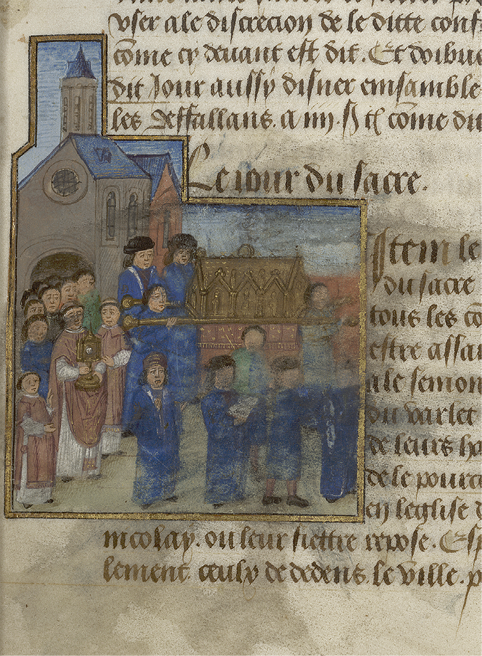 vser a le discrecion de le ditte conf
come cy deuant est dit. Et doibue
dit Jour aussy disner emsamble
les deffallans. a iiij. s Itē come dit
Le iour du sacre.
Item le
du sacre
tous les co
estre assa
a le semon
du varlet
de leurs ho
de le pourc
en leglise d
nicolay. ou leur fiettre repose. Esp
lement ceulx de dedens le ville. p